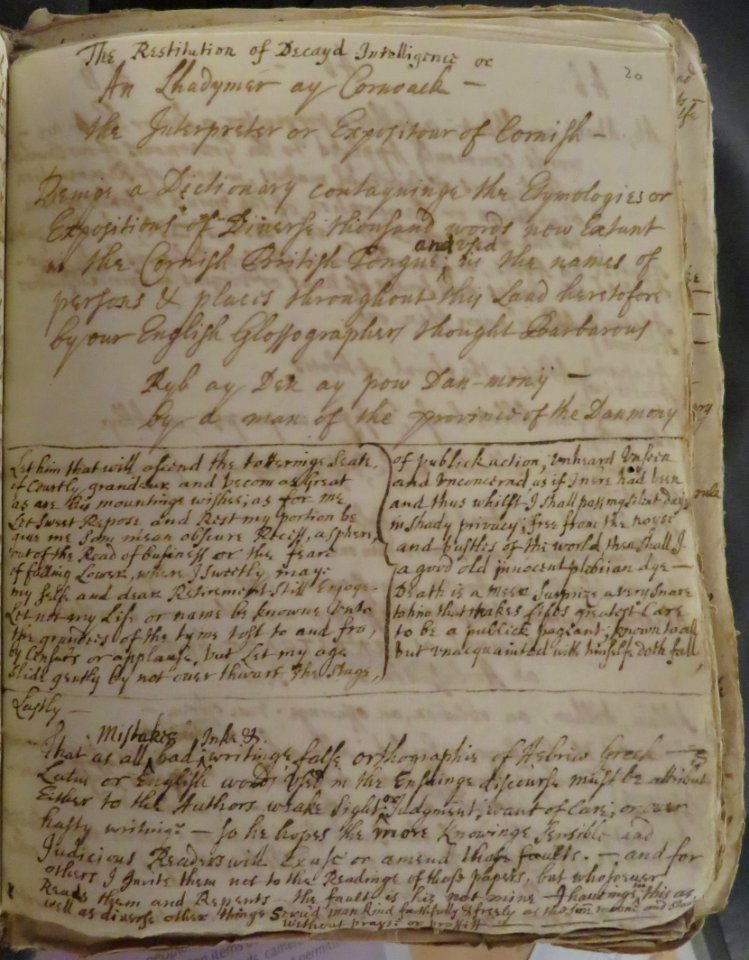 The Restitution of Decayd Intelligence or
20
An Lhadymer ay Cornoack —
the Interpreter or Expositour of Cornish —
Beinge a Dictionary contayninge the Etymologies or
Expositions of Diverse thousand words now Extant
in the Cornish British Tongue; and Used in the names of
persons & places throughout this Land heretofore
by our English Glossographers thought Barbarous
Ryb ay Den ay pow Dan-monij —
by a man of the province of the Danmony
Let him that will ascend the totteringe Seate
of Courtly grandeur and becom as great
as are his mountinge wishes; as for me
Let Sweet Repose and Rest my portion be
give me som mean obscure Recess, a sphere
out of the Road of business or the feare
of falling Lower, where I sweetly may:
my self and dear Retirement still Enjoye
Let not my Life or name be knowne Unto
the grandeis of the tyme tost to and fro,
by Censurs or applause, but Let my age
slide gently by not overthwart the stage,
of publick action, Unheard Unseen
and Unconcernd as if I nere had been
and thus whilst I shall pass my silent days
in shady privacy; free from the noyse
and bustles of the world then shall I
a good old innocent plebian dye —
Death is a meer Surprize a very Snare
to him that makes Lifes greatest Care
to be a publick pageant; known to all
but unacquainted with himself doth fall
Lastly —
That as all Mistakes, bad Ink &. writinge false orthographie of Hebrew Greek —
Latin or English words Used in the Ensuinge discourse must be
Either to the Authors weake sight or Judgment, want of Care, or over
hasty writinge — so he hopes the more Knowinge Sensible and
Judicious Readers will Excuse or amend those faults. — and for
others I Invite them not to the Readings of those papers, but whosoever
Reads them and Repents the fault is his not mine — I have this as
well as diverse other things man kind faithfully & freely as
without prayse or proffitt